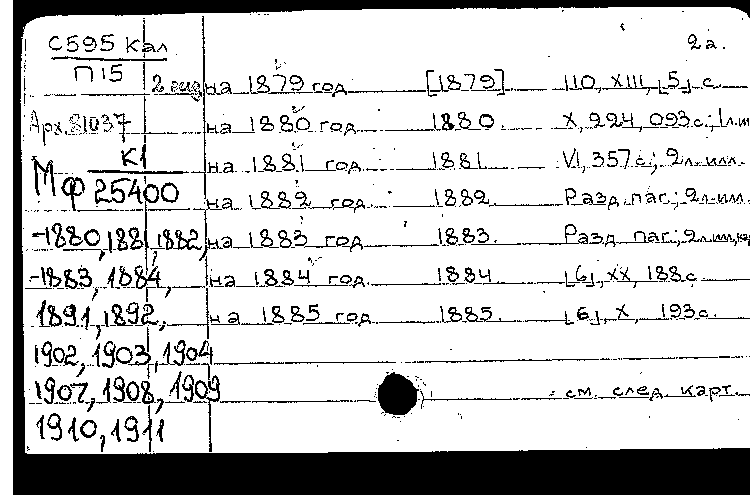 С595 Кал
2а.
П15
2 эиз на 1879 год [1879] 110, XIII, [5] с.
Арх. 81037 на 1880 год 1880. X, 224, 093 с.; 1 л. и
К1 на 1881 год 1881. VI, 357 с.; 2 л. илл.
Мф 25400 на 1882 год 1882. Разд. паг.; 2 л. илл.
-1880, 1881, 1882, на 1883 год 1883. Разд. паг.; 2 л. илл, кар
-1883, 1884, на 1884 год 1884. [6], XX, 188 с.
1891, 1892, на 1885 год 1885. [6], X, 193 с.
1902, 1903, 1904
1907, 1908, 1909 см. след. карт.
1910, 1911